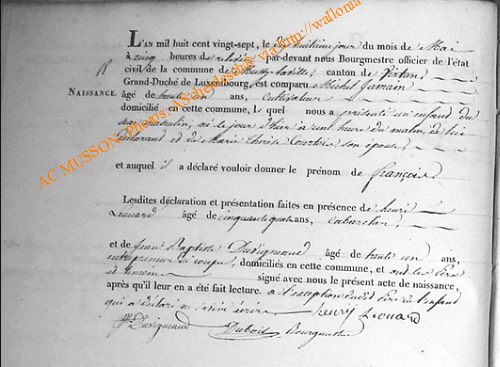 L'AN mil huit cent vingt-sept, le dix huitième jour du mois de Mai
à cinq heures de relevée, par-devant nous Bourgmestre officier de l'état
civil de la commune de canton de Virton
Grand-Duché de Luxembourg, est comparu Michel Jamain
NAISSANCE.
âgé de trente un ans, cultivateur
domicilié en cette commune, le quel nous a présenté un enfant du
sexe masculin, né le jour d'hier à une heure du matin, de lui
déclarant et de Marie son épouse
et auquel il a déclaré vouloir donner le prénom de françois
Lesdites déclaration et présentation faites en présence de henri
Léonard âgé de cinquante quatre ans, cabaretier,
et de jean Baptiste Duvigneaud âgé de trente un ans,
entrepreneur de domiciliés en cette commune, et ont les dits
témoins signé avec nous le présent acte de naissance,
après qu'il leur en a été fait lecture. a l'exception du père de l'enfant
qui a déclaré
henry Léonard
Duvigneaud Dubois Bourgmestre
AC MUSSON: Photos: via http://wallonia